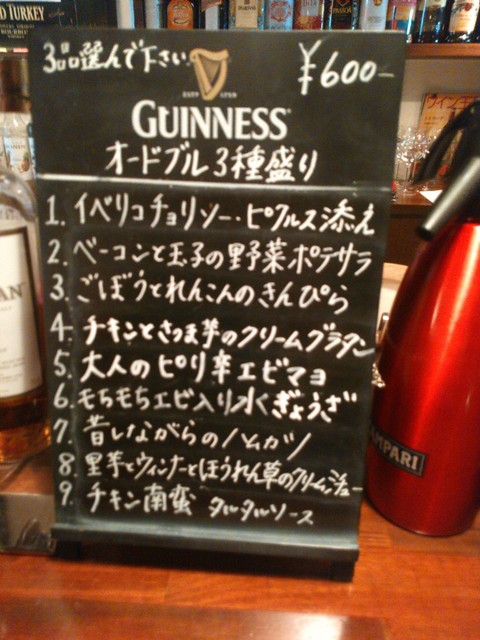 D TURKEY
3品選んで下さい
¥600-
GUINNESS
オードブル3種盛り
1. イベリコチョリソー・ピクルス添え
2. ベーコンと玉子の野菜ポテサラ
3. ごぼうとれんこんのきんぴら
4. チキンとさつま芋のクリームグラタン
5. 大人のピリ辛エビマヨ
6. もちもちエビ入り水ぎょうざ
7. 昔しながらのハムカツ
8. 里芋とウィンナーとほうれん草のクリームシチュー
9. チキン南蛮 タルタルソース
AMPARI